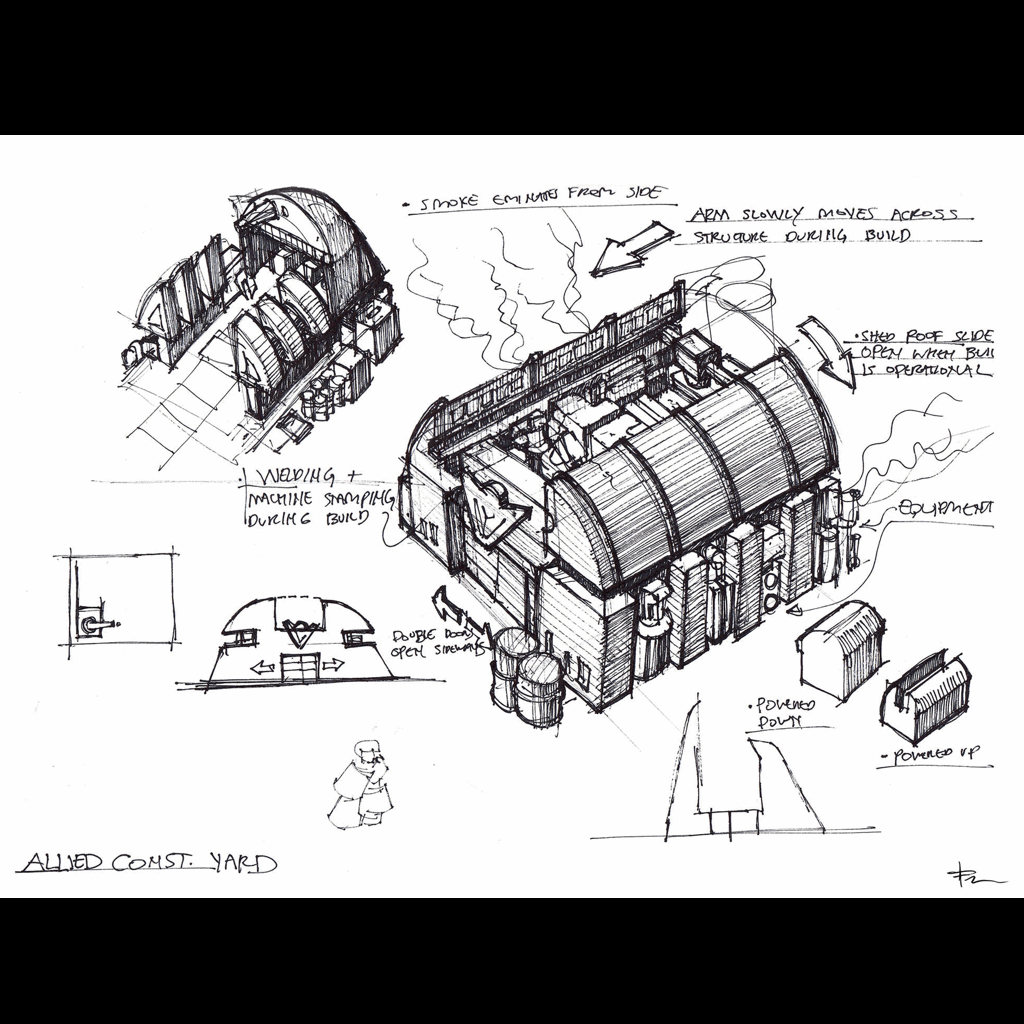 • SMOKE EMINATES FROM SIDE
ARM SLOWLY MOVES ACROSS
STRUCTURE DURING BUILD
• SHED ROOF SLIDE
OPEN WHEN BUI
IS OPERATIONAL
• WELDING +
MACHINE STAMPING
DURING BUILD
EQUIPMENT
DOUBLE DOORS
OPEN SIDEWAYS
• POWERED
DOWN
• POWERED UP
ALLIED CONST. YARD